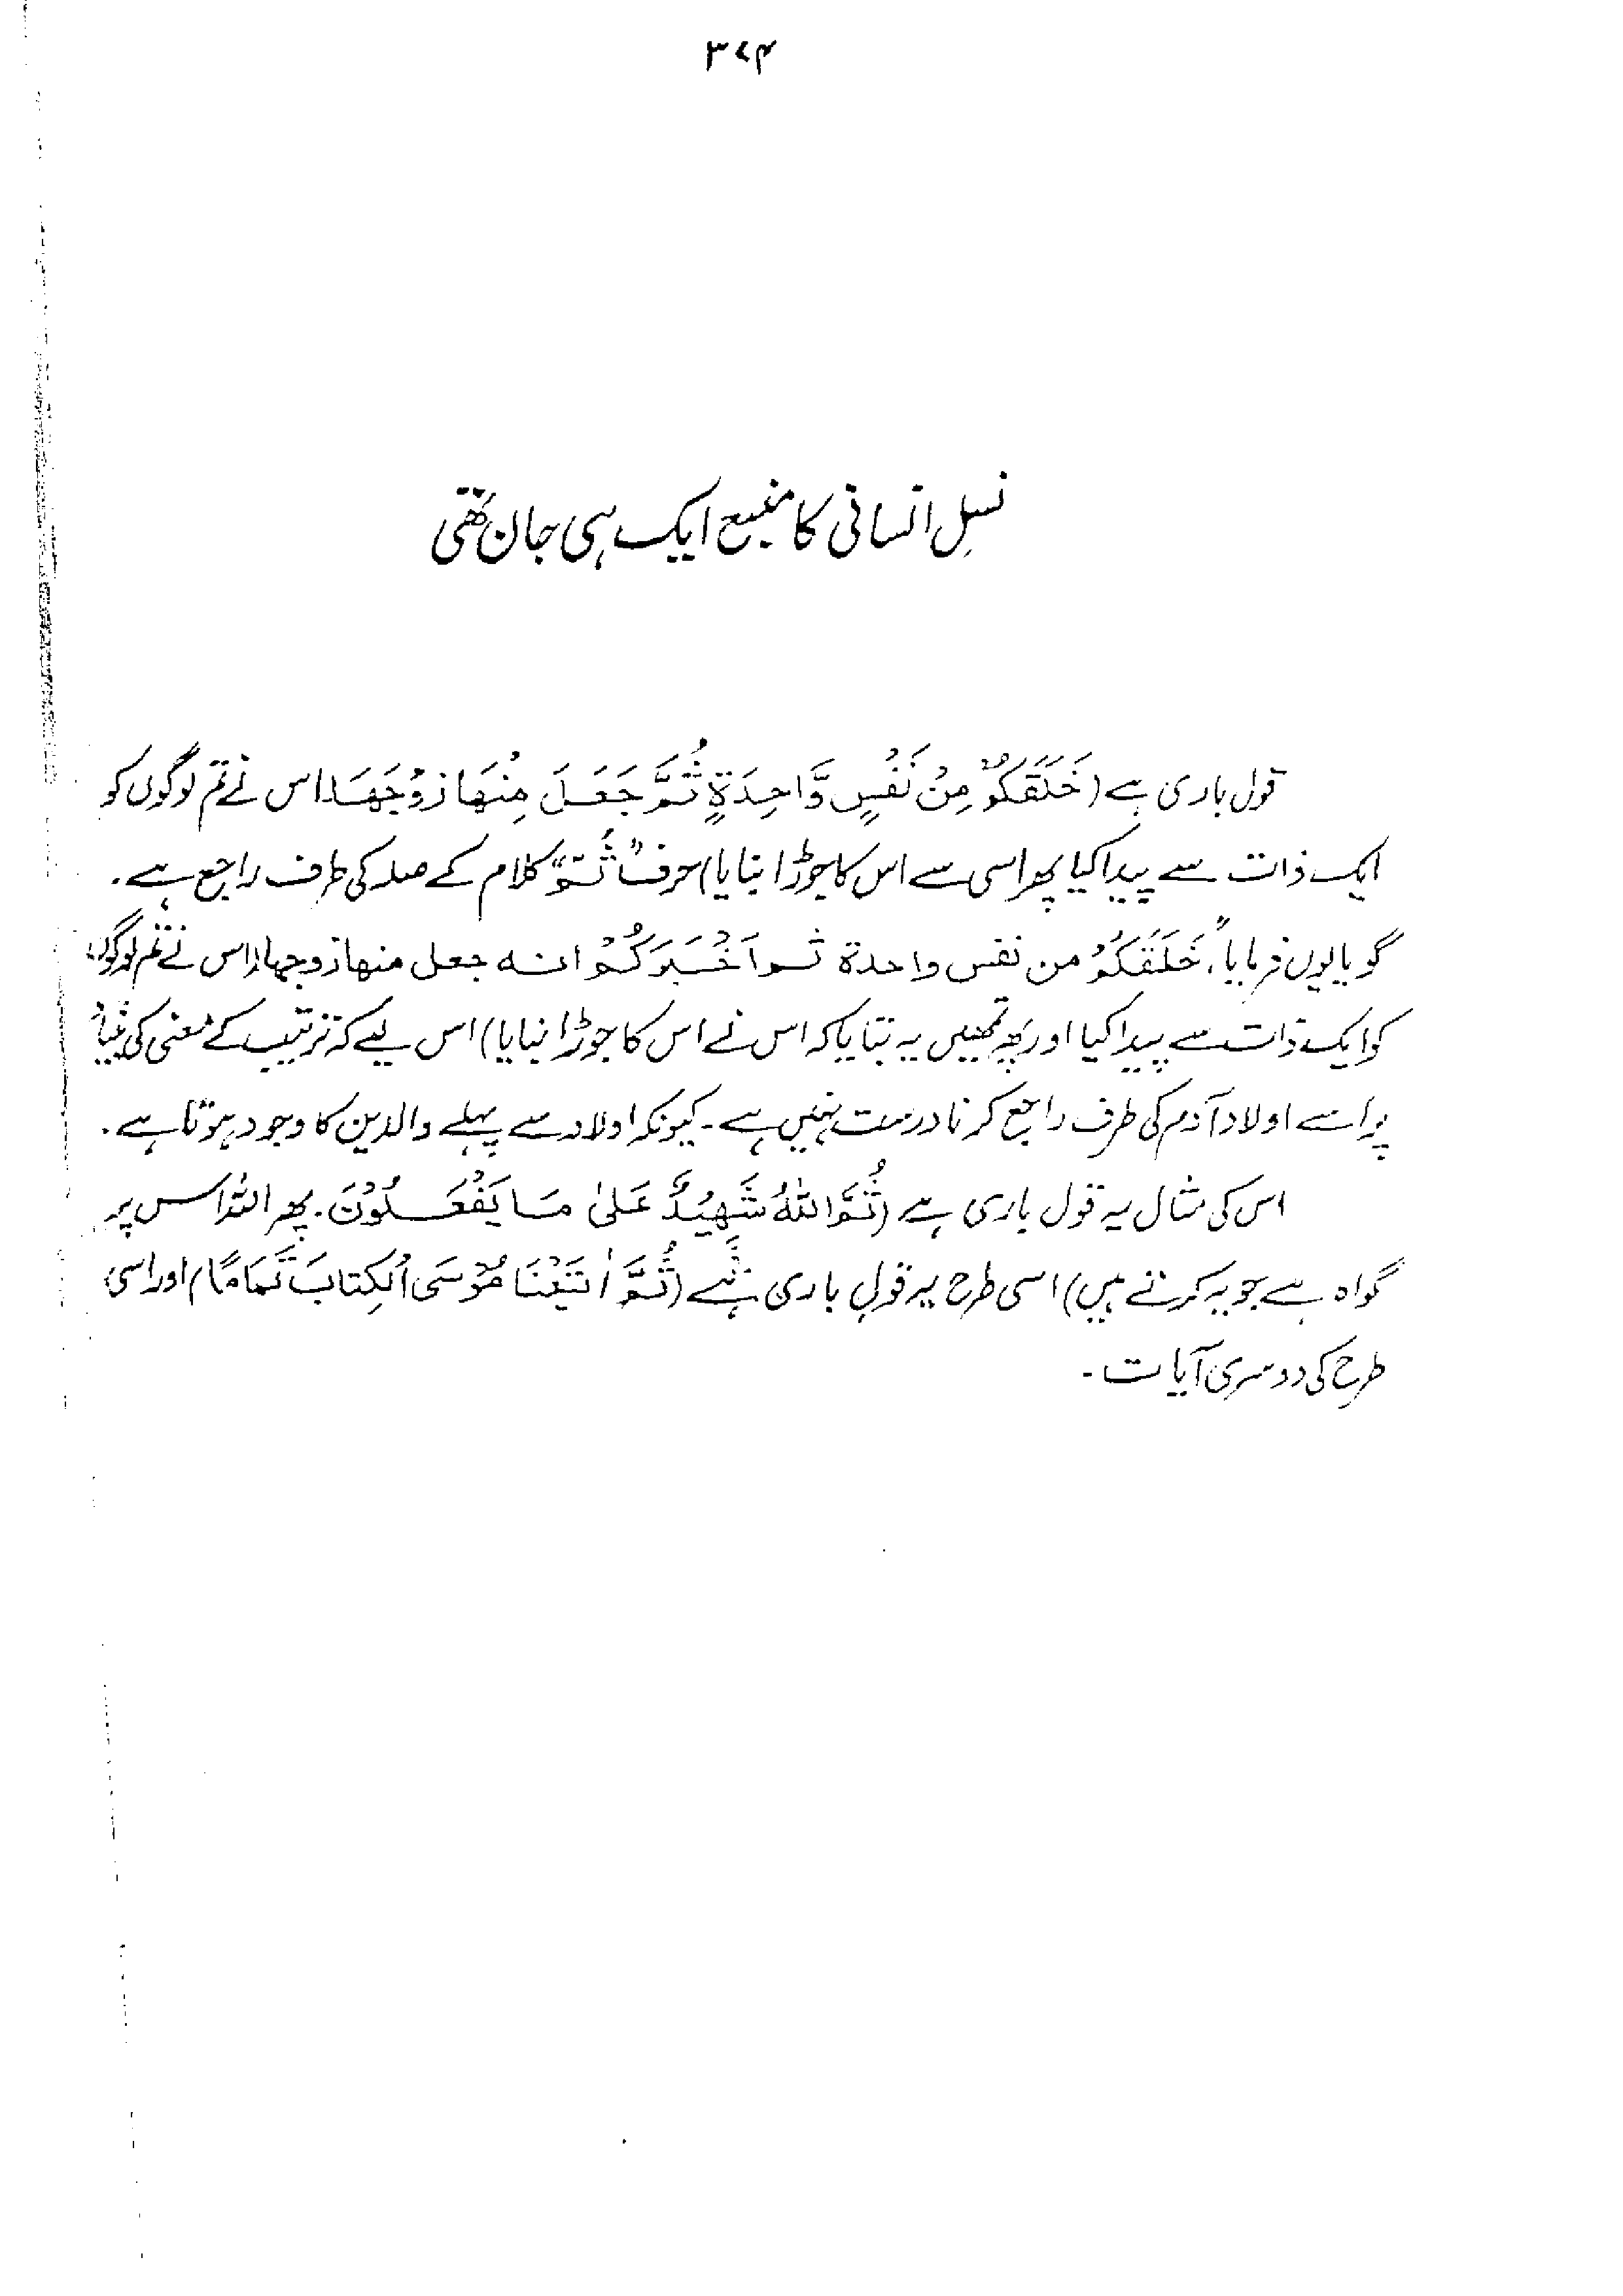 ۳۷۴
نسلِ انسانی کا منبع ایک ہی جان تھی
قول باری ہے (خَلَقَكُمْ مِنْ نَفْسٍ وَّاحِدَةٍ ثُمَّ جَعَلَ مِنْهَا زَوْجَهَا۔ اس نے تم لوگوں کو
ایک ذات سے پیدا کیا پھر اسی سے اس کا جوڑا بنایا) حرف "ثُمَّ" کلام کے صلہ کی طرف راجع ہے۔
گویا یوں فرمایا "خَلَقَكُمْ من نفس واحدة ثم اَخْبَرَكُمْ انه جعل منها زوجها (اس نے تم لوگوں
کو ایک ذات سے پیدا کیا اور پھر تمھیں یہ بتایا کہ اس نے اس کا جوڑا بنایا) اس لیے کہ ترتیب کے معنی کی بنا
پر اسے اولاد آدم کی طرف راجع کرنا درست نہیں ہے۔ کیونکہ اولاد سے پہلے والدین کا وجود ہوتا ہے۔
اس کی مثال یہ قول باری ہے (ثُمَّ اللّٰهُ شَهِيْدٌ عَلىٰ مَا يَفْعَلُوْنَ۔ پھر اللہ اس پر
گواہ ہے جو یہ کرتے ہیں) اسی طرح یہ قولِ باری ہے (ثُمَّ اٰتَيْنَا مُوْسَى الْكِتَابَ تَمَامًا) اور اسی
طرح کی دوسری آیات۔